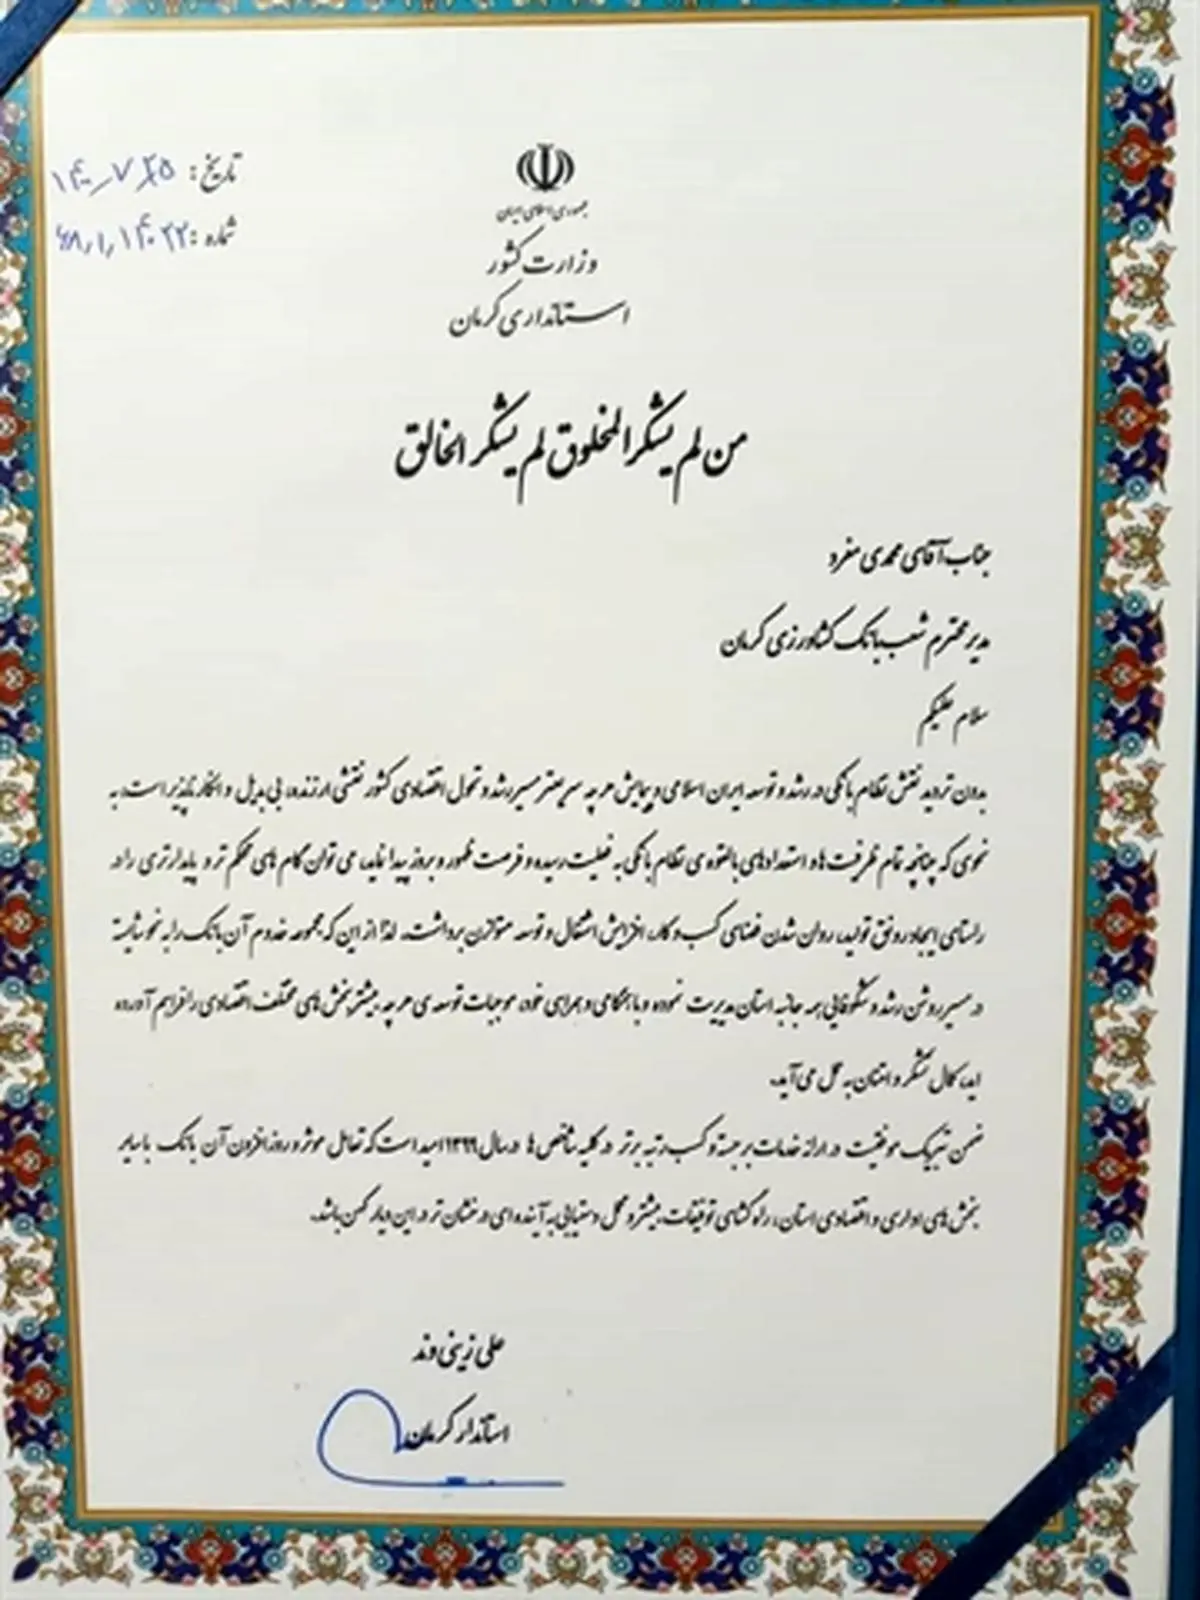 جمهوری اسلامی ایران
وزارت کشور
استانداری کرمان
تاریخ: ۱۴۰۰/۷/۲۵
شماره:
من لم یشکر المخلوق لم یشکر الخالق
جناب آقای محمدی منفرد
مدیر محترم شعب بانک کشاورزی کرمان
سلام علیکم
بدون تردید نقش نظام بانکی در رشد و توسعه ایران اسلامی و پیمایش هر چه سریعتر مسیر رشد و تحول اقتصادی کشور نقشی ارزنده، بی بدیل و انکار ناپذیر است، به
نحوی که چنانچه تمام ظرفیت ها و استعدادهای بالقوه ی نظام بانکی به فعلیت رسیده و فرصت ظهور و بروز پیدا نماید، می توان گام های محکم تر و پایدارتری را در
راستای ایجاد رونق تولید، روان شدن فضای کسب و کار، افزایش اشتغال و توسعه متوازن برداشت. لذا از این که مجموعه خدوم آن بانک را به نحو شایسته
در مسیر روشن رشد و شکوفایی همه جانبه استان مدیریت نموده و با همگامی و همراهی خود، موجبات توسعه ی هر چه بیشتر بخش های مختلف اقتصادی را فراهم آورده
اید، کمال تشکر و امتنان به عمل می آید.
ضمن تبریک موفقیت در ارائه خدمات برجسته و کسب رتبه برتر در کلیه شاخص ها در سال ۱۳۹۹ امید است که تعامل موثر و روز افزون آن بانک با سایر
بخش های اداری و اقتصادی استان، راه گشای توفیقات بیشتر و محل دستیابی به آینده ای درخشان تر در این دیار کهن باشد.
علی زینی وند
استاندار کرمان